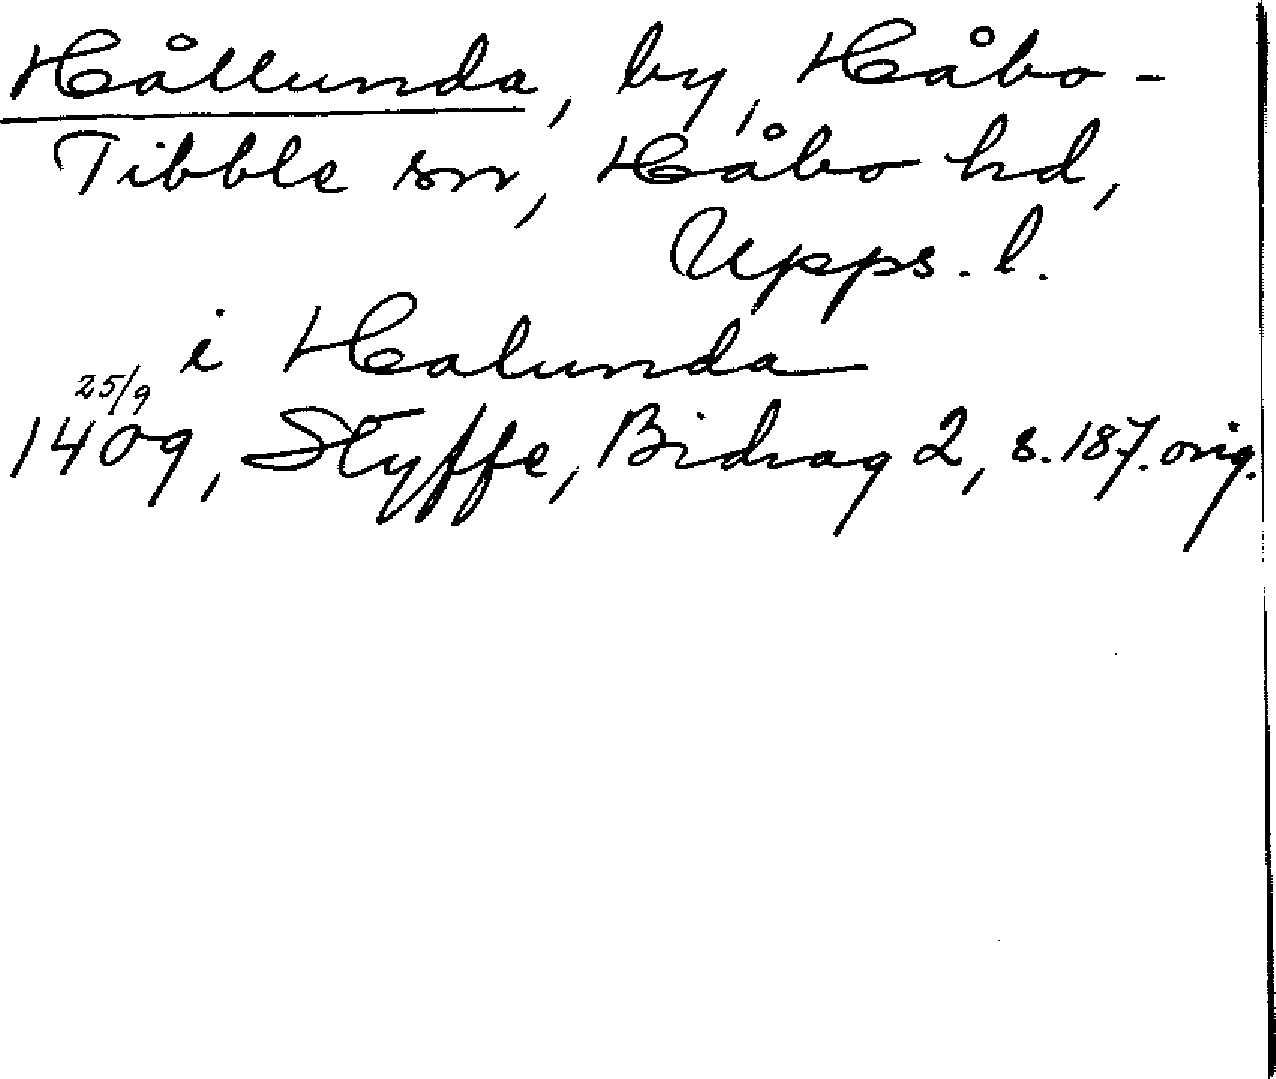 Hållunda, by, Håbo-
Tibble sn, Håbo hd,
Upps. l.
i Halunda
25/9
1409, Styffe, Bidrag 2, s. 187. orig.